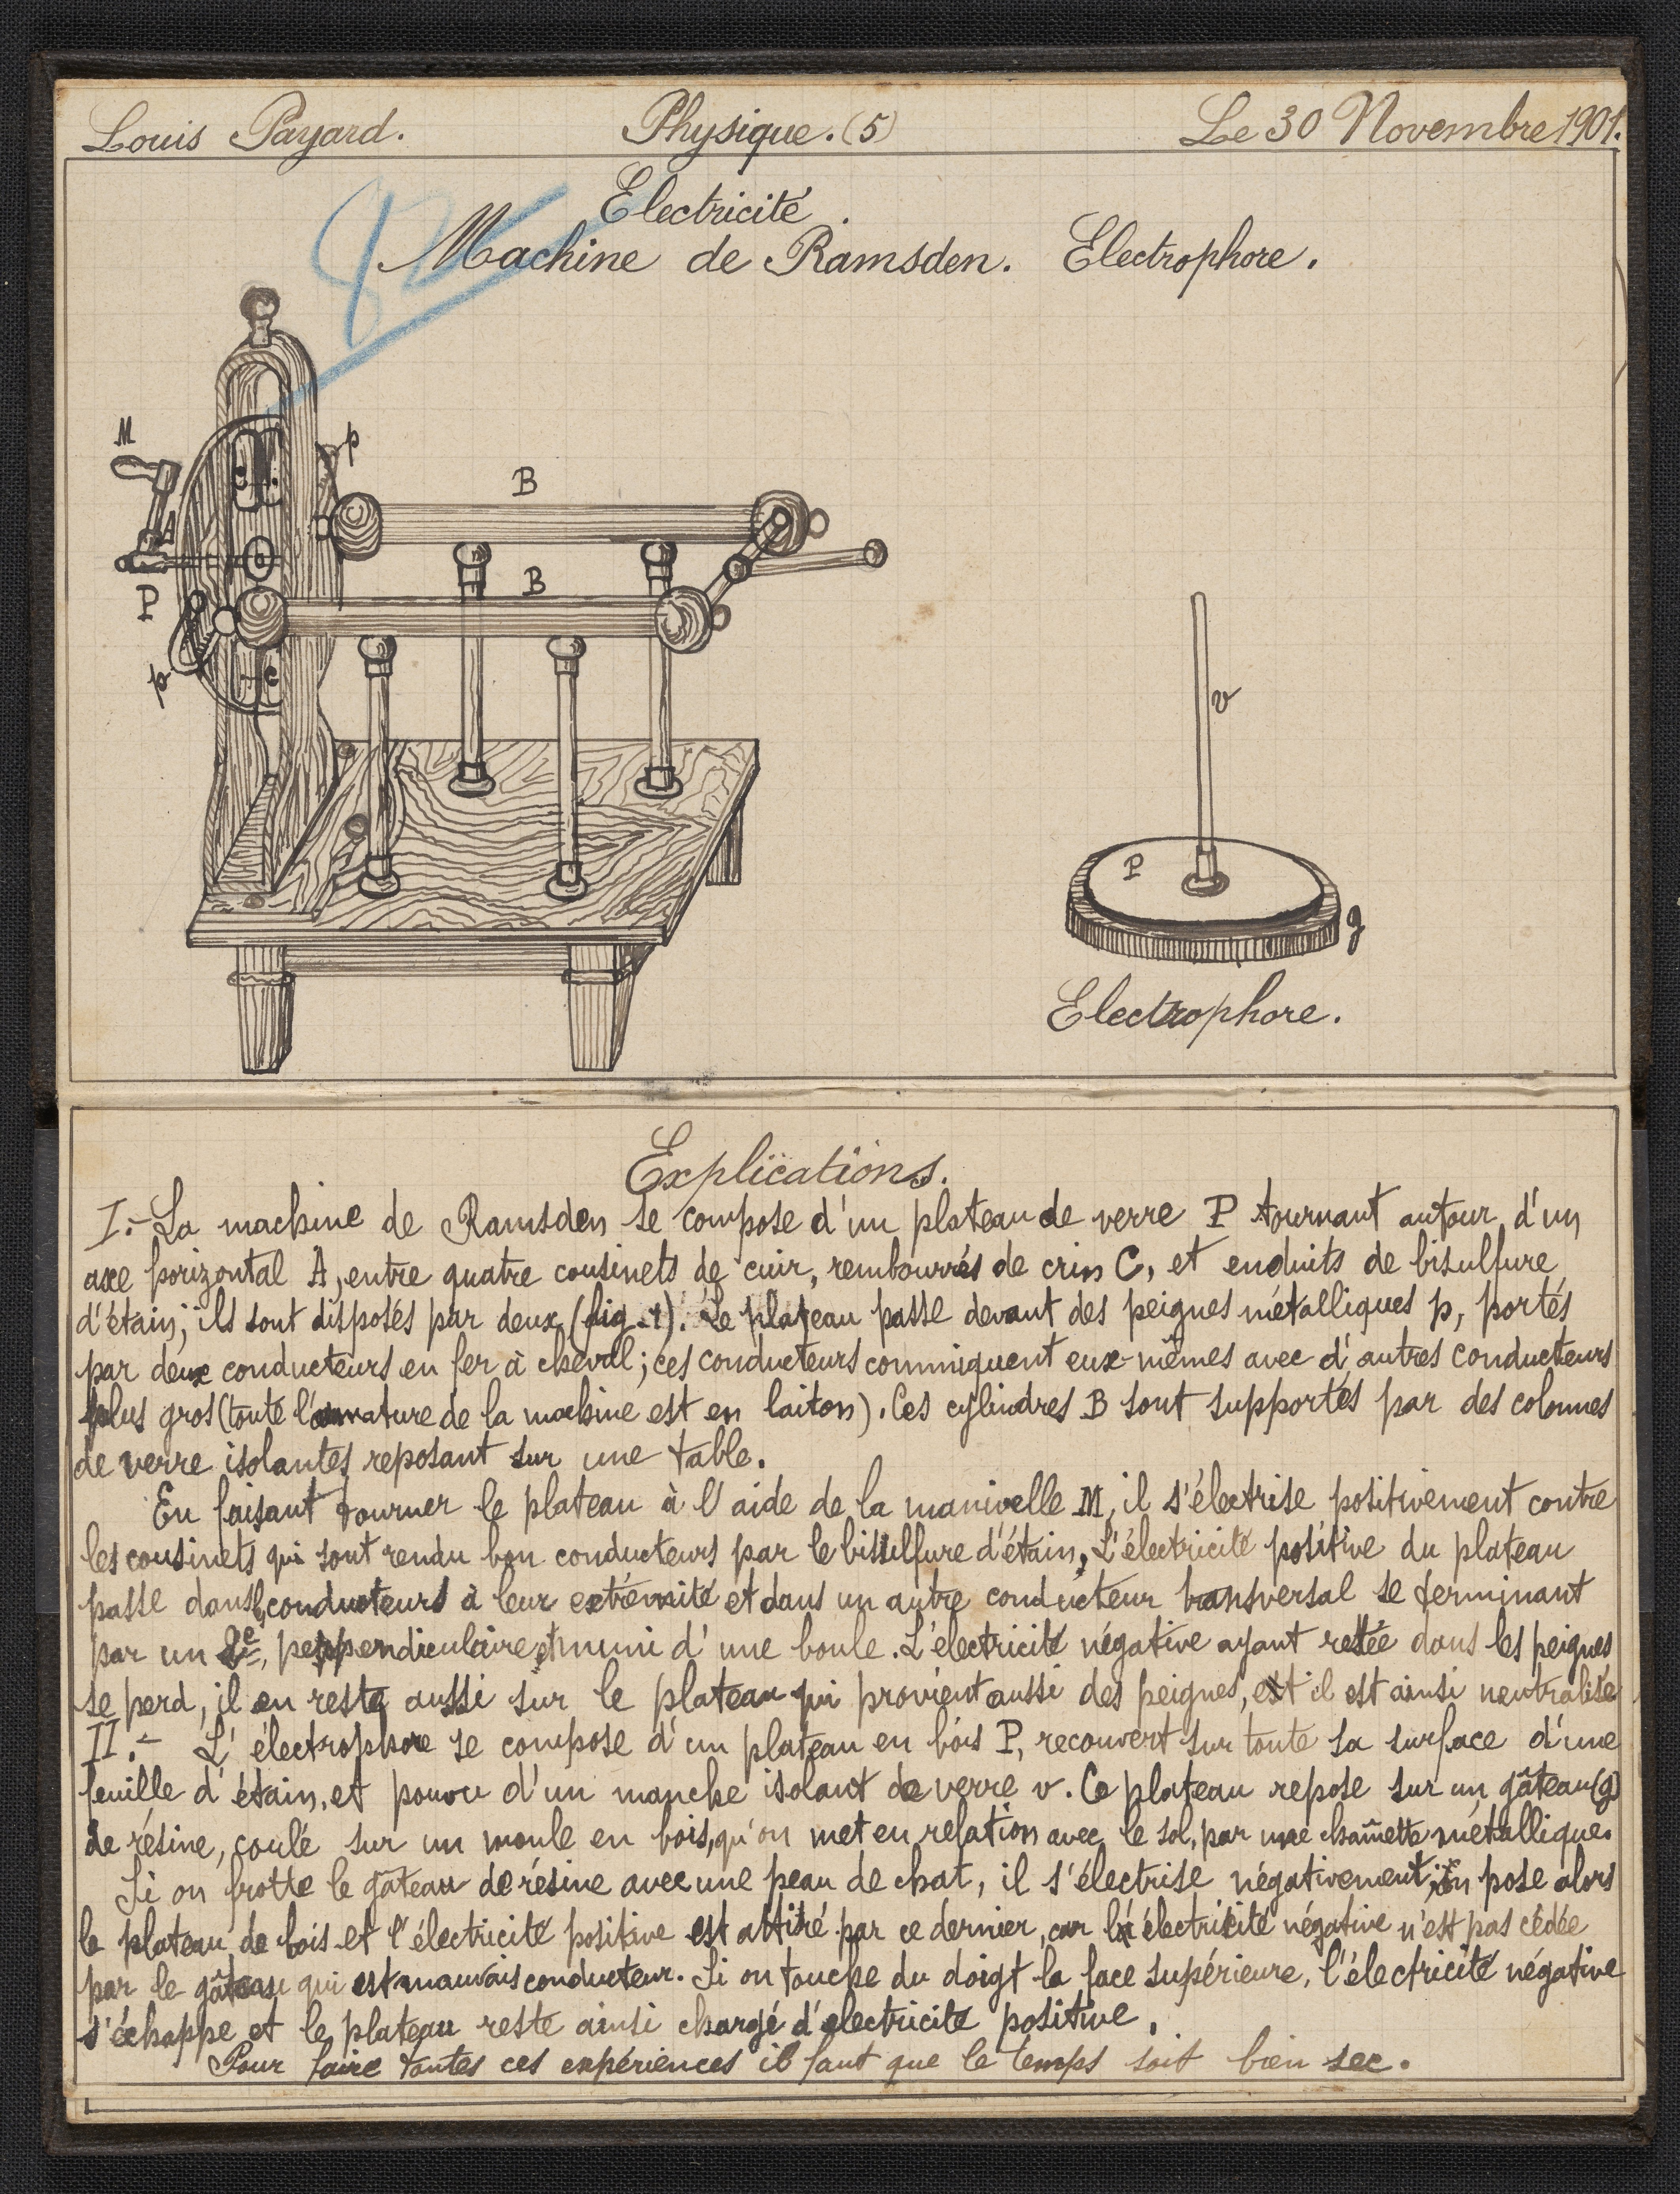 Louis Payard. Physique. (5) Le 30 Novembre 1901.
Electricité.
Machine de Ramsden. Electrophore.
M
p
B
A
B
P
p
c
v
P
g
Electrophore.
Explications.
I.- La machine de Ramsden se compose d'un plateau de verre P tournant autour d'un
axe horizontal A, entre quatre cousinets de cuir, rembourrés de crin C, et enduits de bisulfure
d'étain; ils sont disposés par deux (fig. 1). Le plateau passe devant des peignes métalliques p, portés
par deux conducteurs en fer à cheval; ces conducteurs commniquent eux-mêmes avec d'autres conducteurs
plus gros (toute l'armature de la machine est en laiton). Ces cylindres B sont supportés par des colonnes
de verre isolantes reposant sur une table.
En faisant tourner le plateau à l'aide de la manivelle M, il s'électrise positivement contre
les cousinets qui sont rendu bon conducteurs par le bisulfure d'étain. L'électricité positive du plateau
passe dans les conducteurs à leur extrémité et dans un autre conducteur transversal se terminant
par un 2e, perpendiculaire et muni d'une boule. L'électricité négative ayant restée dans les peignes
se perd, il en reste aussi sur le plateau qui provient aussi des peignes, et il est ainsi neutralisé
II.- L'électrophore se compose d'un plateau en bois P, recouvert sur toute sa surface d'une
feuille d'étain, et pouvu d'un manche isolant de verre v. Ce plateau repose sur un gâteau (g)
de résine, coulé sur un moule en bois, qu'on met en relation avec le sol, par une chaînette métallique.
Si on frotte le gâteau de résine avec une peau de chat, il s'électrise négativement; on pose alors
le plateau de bois et l'électricité positive est attiré par ce dernier, car l'électricité négative n'est pas cédée
par le gâteau qui est mauvais conducteur. Si on touche du doigt la face supérieure, l'électricité négative
s'échappe et le plateau reste ainsi chargé d'électricité positive.
Pour faire toutes ces expériences il faut que le temps soit bien sec.